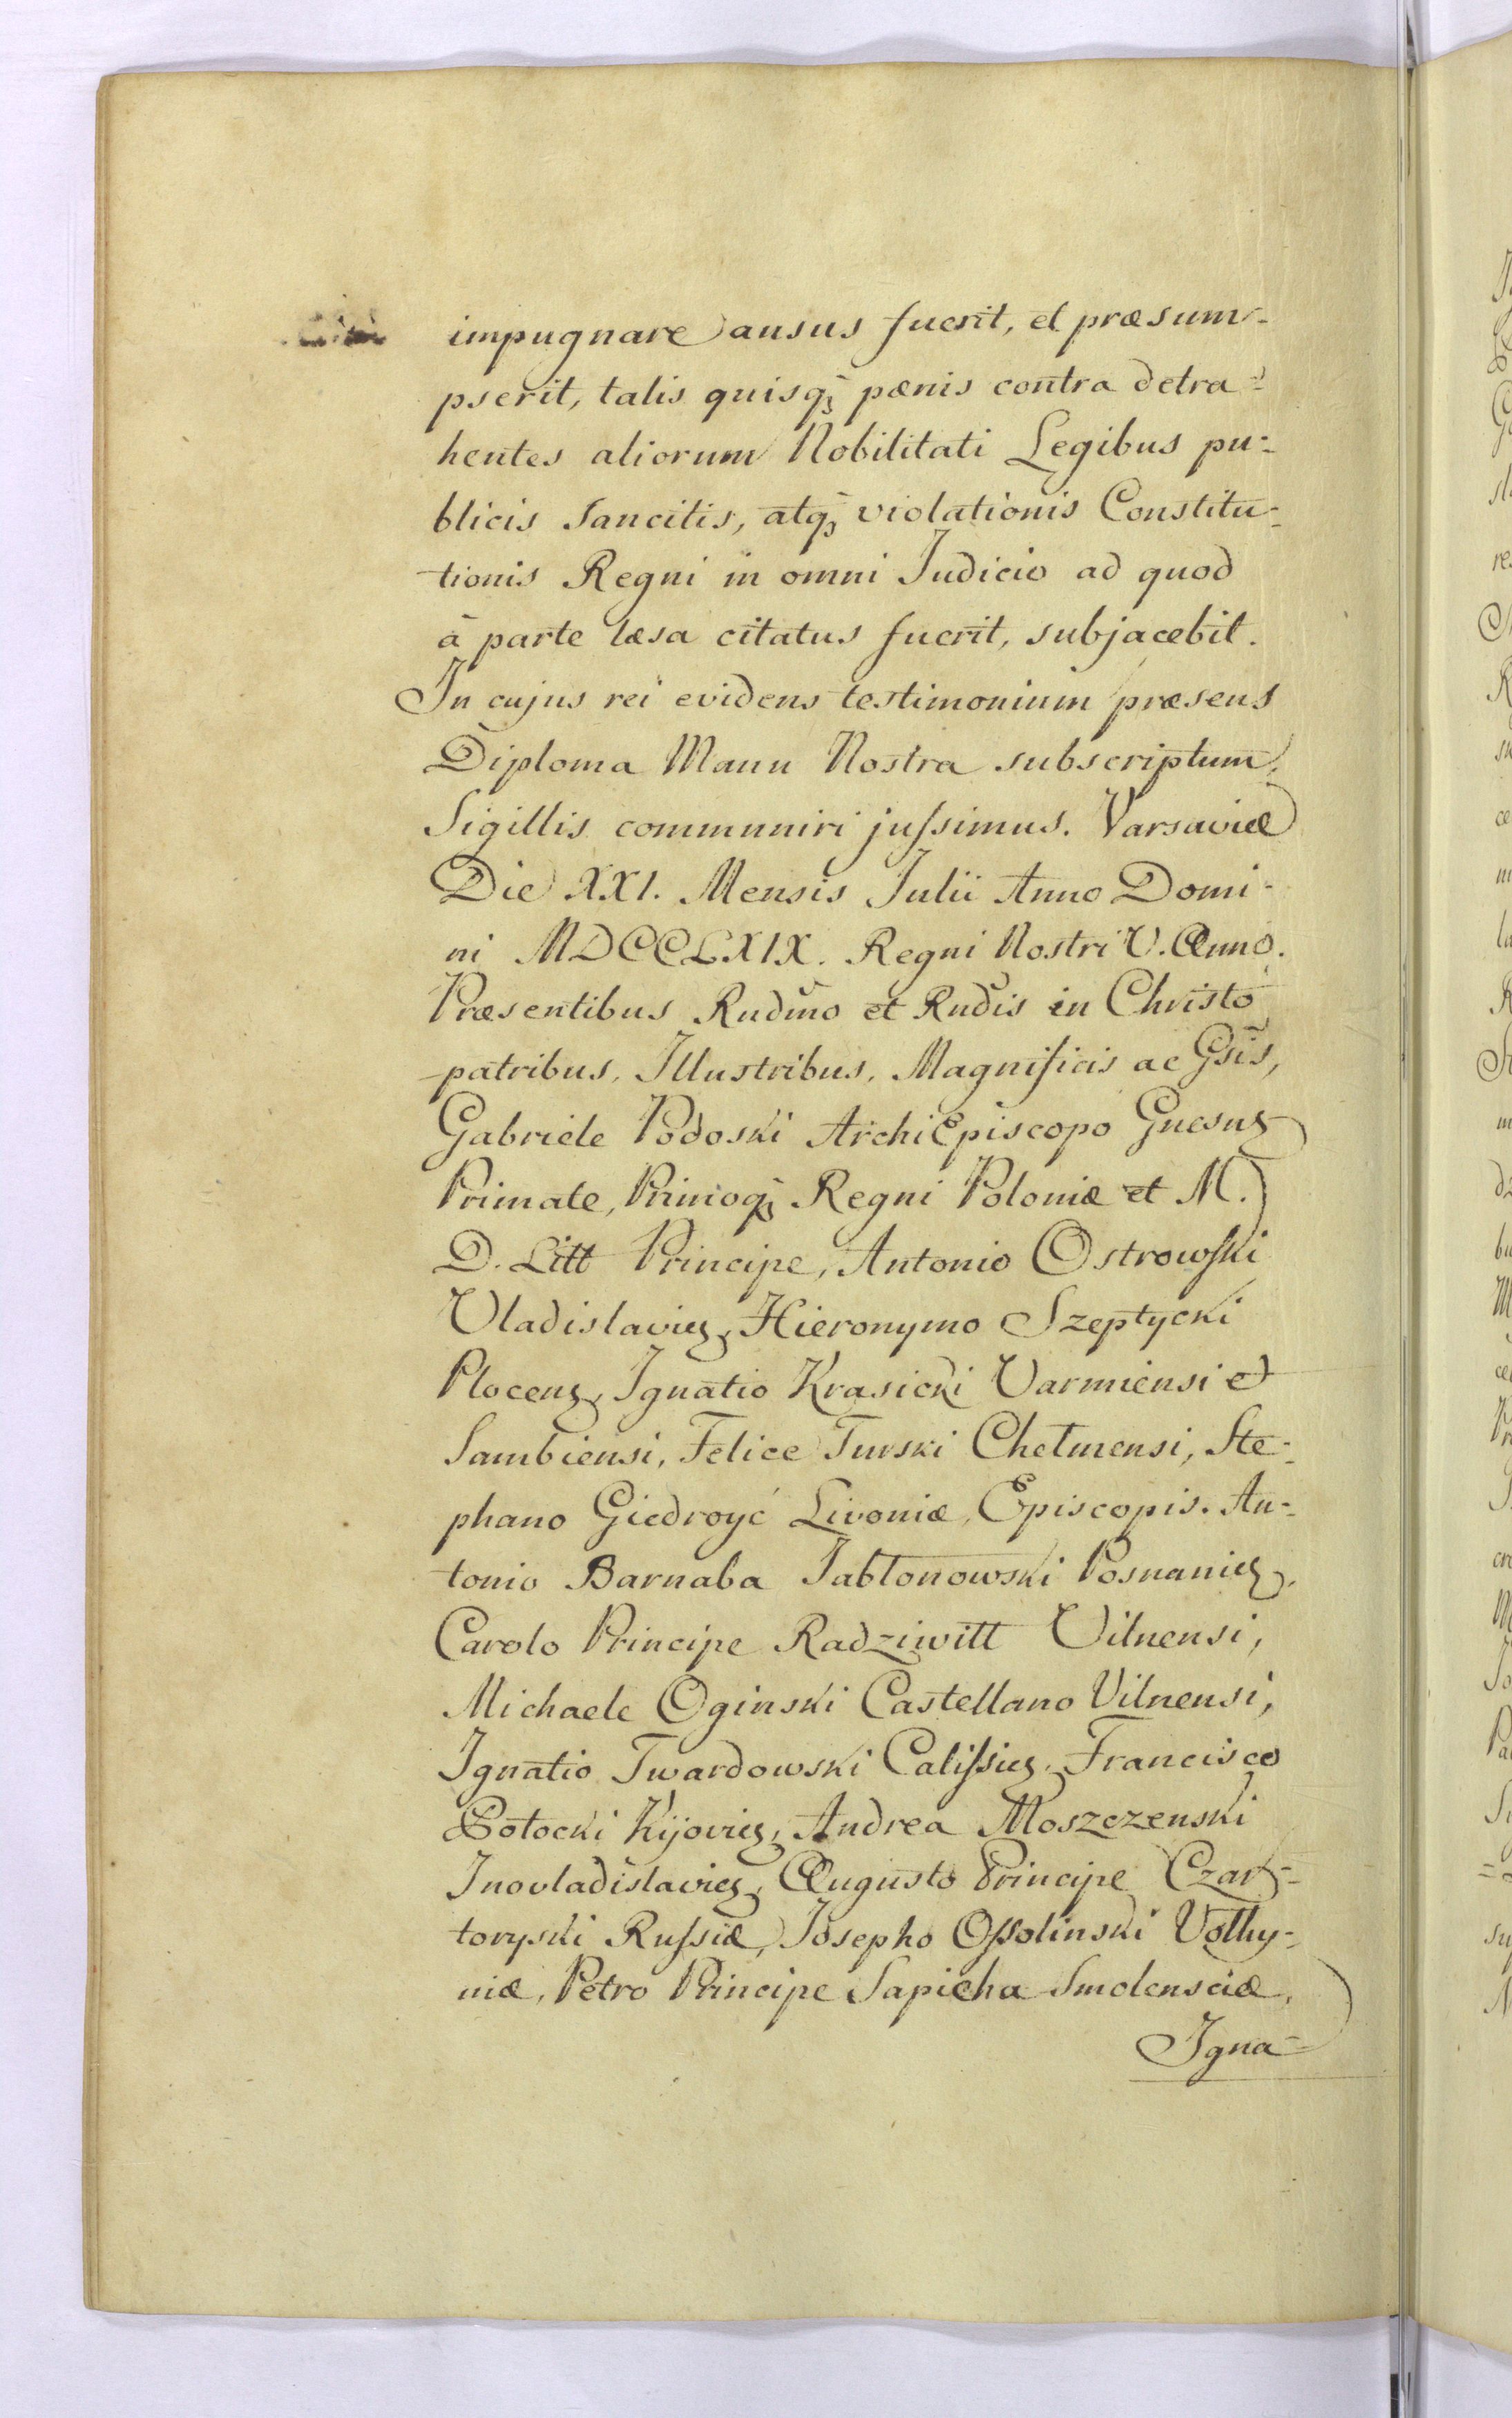 impugnare ausus fuerit, et præsum-
pserit, talis quisq; pœnis contra detra-
hentes aliorum Nobilitati Legibus pu-
blicis sancitis, atq; violationis Constitu-
tionis Regni in omni Judicio ad quod
à parte læsa citatus fuerit, subjacebit.
In cujus rei evidens testimonium præsens
Diploma Manu Nostra subscriptum,
Sigillis communiri jussimus. Varsaviæ
Die XXI. Mensis Julii Anno Domi-
ni MDCCLXIX. Regni Nostri V. Anno.
Præsentibus Rndmo et Rndis in Christo
patribus, Illustribus, Magnificis ac Gsis,
Gabriele Podoski ArchiEpiscopo Gnesnz
Primate, Primoq; Regni Poloniæ et M.
D. Litt Principe, Antonio Ostrowski
Vladislaviez, Hieronymo Szeptycki
Plocenz, Ignatio Krasicki Varmiensi et
Sambiensi, Felice Turski Chełmensi, Ste-
phano Giedroyć Livoniæ, Episcopis. An-
tonio Barnaba Jabłonowski Posnaniez,
Carolo Principe Radziwiłł Vilnensi,
Michaele Oginski Castellano Vilnensi,
Ignatio Twardowski Calissiez, Francisco
Potocki Kijoviez, Andrea Moszczenski
Inovladislaviez, Augusto Principe Czar-
toryski Russiæ, Josepho Ossolinski Volhy-
niæ, Petro Principe Sapieha Smolensciæ,
Igna-